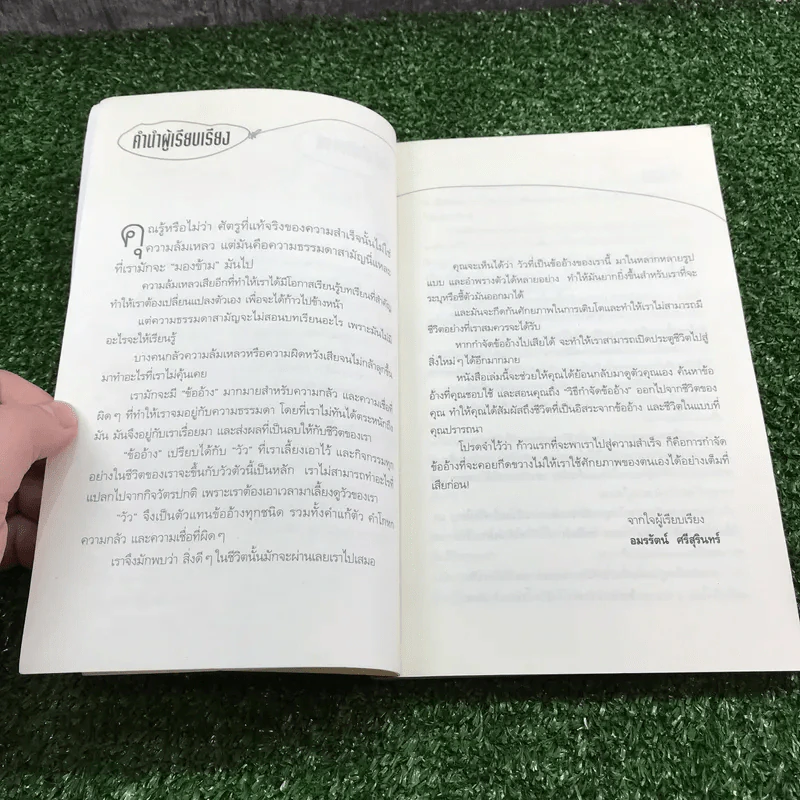 คำนำผู้เรียบเรียง
คุณรู้หรือไม่ว่า ศัตรูที่แท้จริงของความสำเร็จนั้นไม่ใช่
ความล้มเหลว แต่มันคือความธรรมดาสามัญนี่แหละ
ที่เรามักจะ "มองข้าม" มันไป
ความล้มเหลวเสียอีกที่ทำให้เราได้มีโอกาสเรียนรู้บทเรียนที่สำคัญ
ทำให้เราต้องเปลี่ยนแปลงตัวเอง เพื่อจะได้ก้าวไปข้างหน้า
แต่ความธรรมดาสามัญจะไม่สอนบทเรียนอะไร เพราะมันไม่มี
อะไรจะให้เรียนรู้
บางคนกลัวความล้มเหลวหรือความผิดหวังเสียจนไม่กล้าลุกขึ้น
มาทำอะไรที่เราไม่คุ้นเคย
เรามักจะมี "ข้ออ้าง" มากมายสำหรับความกลัว และความเชื่อที่
ผิดๆ ที่ทำให้เราจมอยู่กับความธรรมดา โดยที่เราไม่ทันได้ตระหนักถึง
มัน มันจึงอยู่กับเราเรื่อยมา และส่งผลที่ลบให้กับชีวิตของเรา
"ข้ออ้าง" เปรียบได้กับ "วัว" ที่เราเลี้ยงเอาไว้ และกิจกรรมทุก
อย่างในชีวิตของเราจะขึ้นกับวัวตัวนี้เป็นหลัก เราไม่สามารถทำอะไรที่
แปลกไปจากกิจวัตรปกติ เพราะเราต้องเอาเวลามาเลี้ยงดูวัวของเรา
"วัว" จึงเป็นตัวแทนข้ออ้างทุกชนิด รวมทั้งคำแก้ตัว คำโกหก
ความกลัว และความเชื่อที่ผิดๆ
เราจึงมักพบว่า สิ่งดีๆ ในชีวิตนั้นมักจะผ่านเลยเราไปเสมอ
คุณจะเห็นได้ว่า วัวที่เป็นข้ออ้างของเรานี้ มาในหลากหลายรูป
แบบ และอำพรางตัวได้หลายอย่าง ทำให้มันยากยิ่งขึ้นสำหรับเราที่จะ
ระบุหรือชี้ตัวมันออกมาได้
และมันจะกีดกันศักยภาพในการเติบโตและทำให้เราไม่สามารถมี
ชีวิตอย่างที่เราสมควรจะได้รับ
หากกำจัดข้ออ้างไปเสียได้ จะทำให้เราสามารถเปิดประตูชีวิตไปสู่
สิ่งใหม่ๆ ได้อีกมากมาย
หนังสือเล่มนี้จะช่วยให้คุณได้ย้อนกลับมาดูตัวคุณเอง ค้นหาข้อ
อ้างที่คุณชอบใช้ และสอนคุณถึง "วิธีกำจัดข้ออ้าง" ออกไปจากชีวิตของ
คุณ ทำให้คุณได้สัมผัสถึงชีวิตที่เป็นอิสระจากข้ออ้าง และชีวิตในแบบที่
คุณปรารถนา
โปรดจำไว้ว่า ก้าวแรกที่จะพาเราไปสู่ความสำเร็จ ก็คือการกำจัด
ข้ออ้างที่จะคอยกีดขวางไม่ให้เราใช้ศักยภาพของตนเองได้อย่างเต็มที่
เสียก่อน!
จากใจผู้เรียบเรียง
อมรรัตน์ ศรีสุรินทร์